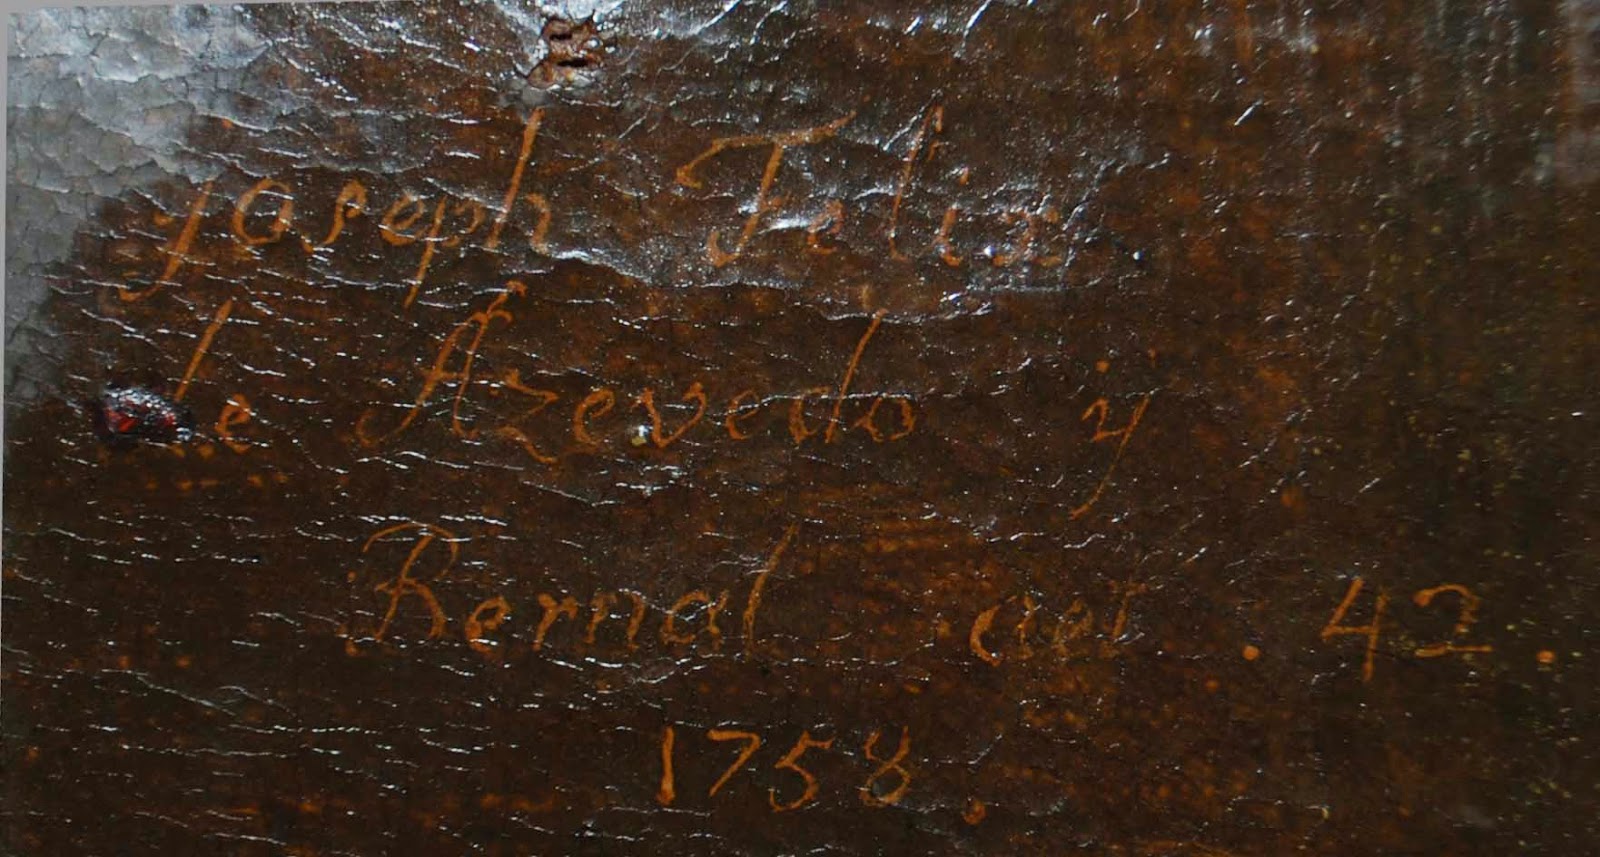 Joseph Felix
de Azevedo ÿ
Bernal aet. 42.
1758.